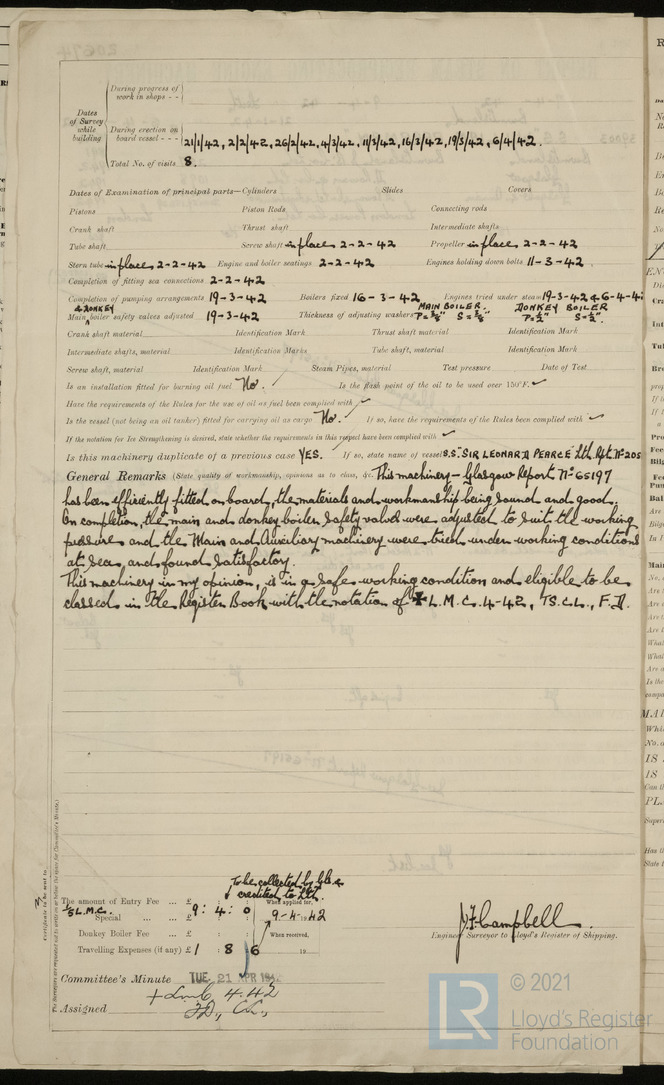 Dates of Survey while building
During progress of work in shops - -
During erection on board vessel - - - 21/1/42, 2/2/42, 26/2/42, 4/3/42, 11/3/42, 16/3/42, 19/3/42, 6/4/42.
Total No. of visits 8.
Dates of Examination of principal parts—Cylinders Slides Covers
Pistons Piston Rods Connecting rods
Crank shaft Thrust shaft Intermediate shafts
Tube shaft Screw shaft in place 2-2-42 Propeller in place 2-2-42
Stern tube in place 2-2-42 Engine and boiler seatings 2-2-42 Engines holding down bolts 11-3-42.
Completion of fitting sea connections 2-2-42
Completion of pumping arrangements 19-3-42 Boilers fixed 16-3-42 Engines tried under steam 19-3-42 & 6-4-42
& DONKEY MAIN BOILER. DONKEY BOILER
Main boiler safety valves adjusted 19-3-42 Thickness of adjusting washers
Crank shaft material Identification Mark Thrust shaft material Identification Mark
Intermediate shafts, material Identification Marks Tube shaft, material Identification Mark
Screw shaft, material Identification Mark Steam Pipes, material Test pressure Date of Test
Is an installation fitted for burning oil fuel No. Is the flash point of the oil to be used over 150°F. ✓
Have the requirements of the Rules for the use of oil as fuel been complied with
Is the vessel (not being an oil tanker) fitted for carrying oil as cargo No. If so, have the requirements of the Rules been complied with ✓
If the notation for Ice Strengthening is desired, state whether the requirements in this respect have been complied with ✓
Is this machinery duplicate of a previous case YES. If so, state name of vessel S.S. "SIR LEONARD PEARCE" Lth. Rpt. No 205
General Remarks (State quality of workmanship, opinions as to class, &c. This machinery – Glasgow Report No 65197
has been efficiently fitted on board, the materials and workmanship being sound and good.
On completion, the main and donkey boiler safety valves were adjusted to suit the working
pressure and the Main and Auxiliary machinery were tried under working conditions
at sea, and found satisfactory.
This machinery in my opinion, is in a safe working condition and eligible to be
classed in the Register Book with the notation of ✠ L.M.C. 4-42, T.S.C.L., F.D.
To be collected by Gls. &
credited to Lth.
The amount of Entry Fee ... £ : : When applied for,
1/5 L.M.C. Special ... ... £ 9 : 4 : 0 9-4-1942
Donkey Boiler Fee ... £ : : When received,
Travelling Expenses (if any) £ 1 : 8 : 6 19
J F Campbell
Engineer Surveyor to Lloyd's Register of Shipping.
Committee's Minute TUE. 21 APR 1942
Assigned + LMC 4.42
FD., CL.,
Certificate to be sent to
© 2021
Lloyd's Register
Foundation